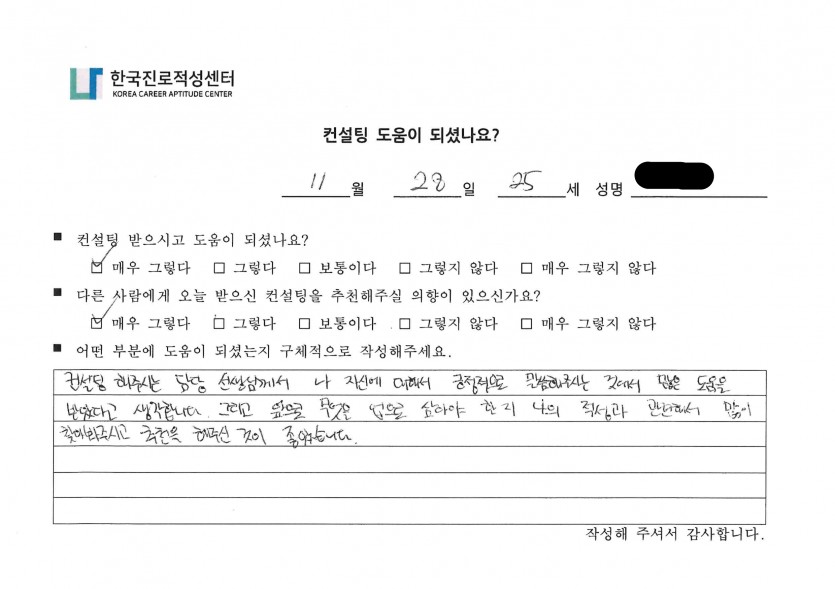 한국진로적성센터
KOREA CAREER APTITUDE CENTER
컨설팅 도움이 되셨나요?
11 월 28 일 25 세 성명
■ 컨설팅 받으시고 도움이 되셨나요?
☑ 매우 그렇다 □ 그렇다 □ 보통이다 □ 그렇지 않다 □ 매우 그렇지 않다
■ 다른 사람에게 오늘 받으신 컨설팅을 추천해주실 의향이 있으신가요?
☑ 매우 그렇다 □ 그렇다 □ 보통이다 □ 그렇지 않다 □ 매우 그렇지 않다
■ 어떤 부분에 도움이 되었는지 구체적으로 작성해주세요.
컨설팅 해주시는 담당 선생님께서 나 자신에 대해서 긍정적으로 말씀해주시는 것에서 많은 도움을
받았다고 생각합니다. 그리고 앞으로 무엇을 업으로 삼아야 한지 나의 적성과 관련해서 많이
찾아봐주시고 추천을 해주신 것이 좋았습니다.
작성해 주셔서 감사합니다.